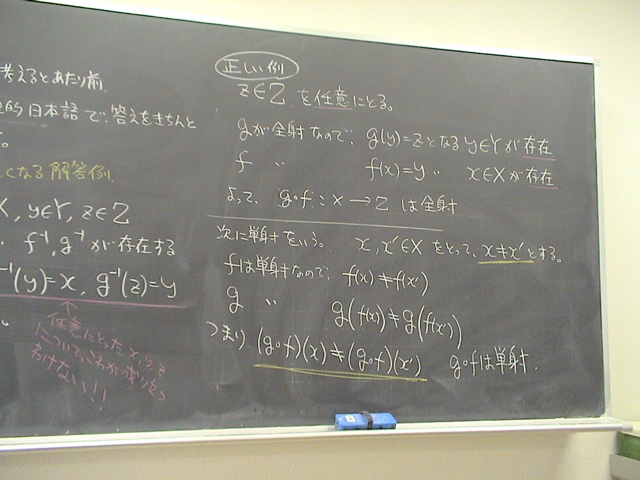 考えるとあたり前。
的日本語で、答えをきちんと
。
くなる解答例.
X, y∈Y, z∈Z
f⁻¹, g⁻¹ が存在する
⁻¹(y)=x, g⁻¹(z)=y
任意にとった x, y, z
について、これが成り立つ
わけない!!!
正しい例
z∈Z を任意にとる。
gが全射なので、g(y)=zとなる y∈Yが存在
f 〃 f(x)=y 〃 x∈Xが存在
よって、g∘f : X → Z は全射
次に単射をいう。 x, x'∈X をとって、x≠x' とする。
fは単射なので、f(x)≠f(x')
g 〃 g(f(x))≠g(f(x'))
つまり (g∘f)(x)≠(g∘f)(x') g∘fは単射.